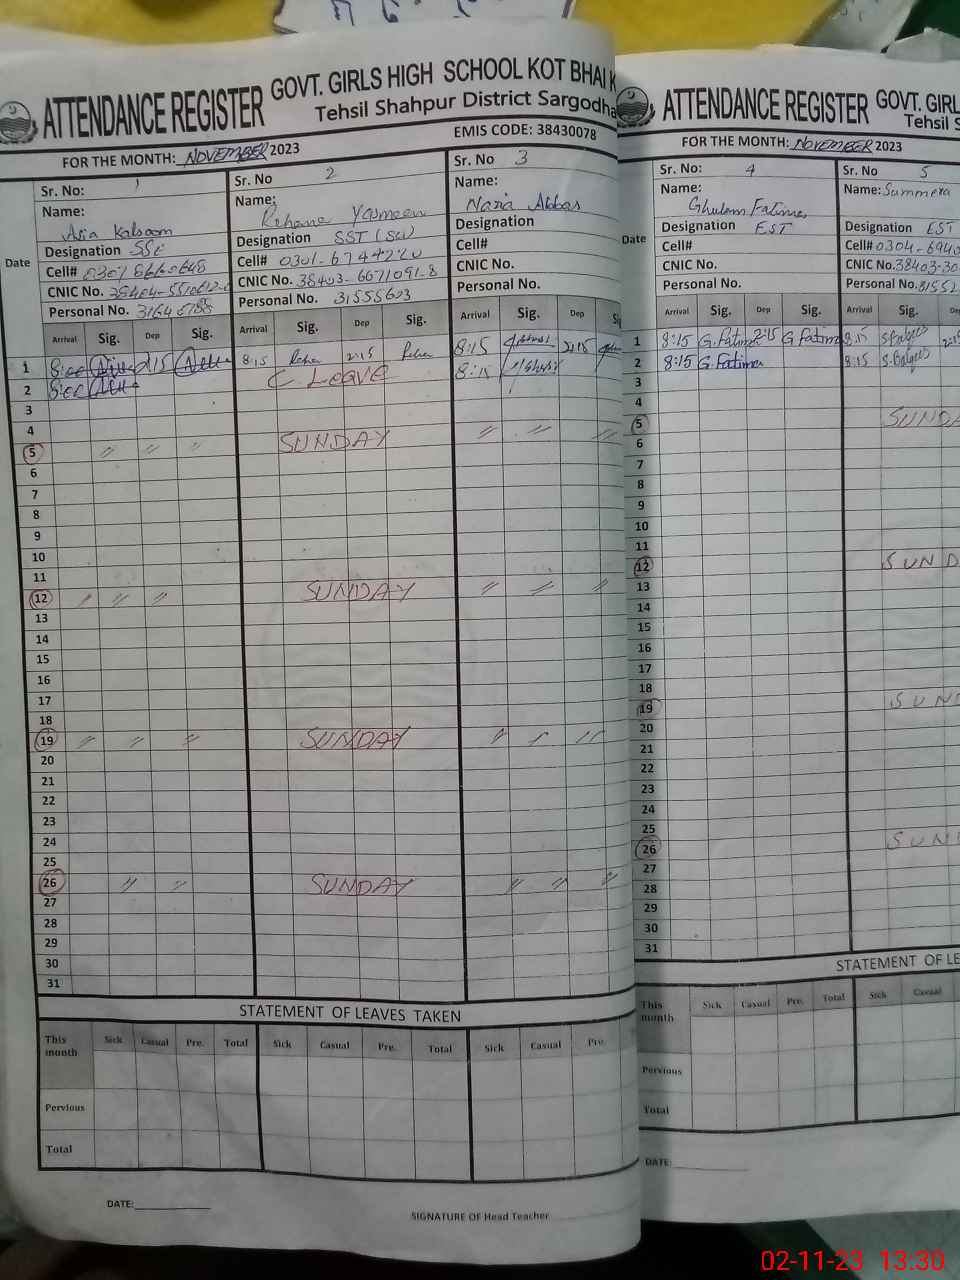 ATTENDANCE REGISTER GOVT. GIRLS HIGH SCHOOL KOT BHAI K
Tehsil Shahpur District Sargodha
EMIS CODE: 38430078
FOR THE MONTH: NOVEMBER 2023
Date
Sr. No: 1 Sr. No 2 Sr. No 3
Name: Name: Name:
Asia Kalsoom Rehana Yasmeen Nazia Abbas
Designation SSE Designation SST (Sci) Designation
Cell# Cell# 0301-6744220 Cell#
CNIC No. CNIC No. 38403-6671091-8 CNIC No.
Personal No. Personal No. 31555603 Personal No.
Arrival Sig. Dep Sig. Arrival Sig. Dep Sig. Arrival Sig. Dep
1 2:15 8:15 2:15 8:15 2:15
2 C. Leave 8:15
3
4
5 SUNDAY
6
7
8
9
10
11
12 SUNDAY
13
14
15
16
17
18
19 SUNDAY
20
21
22
23
24
25
26 SUNDAY
27
28
29
30
31
STATEMENT OF LEAVES TAKEN
This month Sick Casual Pre. Total Sick Casual Pre. Total Sick Casual Pre.
Pervious
Total
DATE:
SIGNATURE OF Head Teacher
ATTENDANCE REGISTER GOVT. GIRL
Tehsil S
FOR THE MONTH: NOVEMBER 2023
Date
Sr. No: 4 Sr. No 5
Name: Name: Summera
Ghulam Fatima
Designation EST Designation EST
Cell# Cell# 0304-6940
CNIC No. CNIC No. 38403-30
Personal No. Personal No. 31552
Arrival Sig. Dep Sig. Arrival Sig. Dep
1 8:15 G. Fatima 2:15 G Fatima 8:15
2 8:15 G Fatima 8:15
3
4
5 SUNDA
6
7
8
9
10
11
12 SUND
13
14
15
16
17
18
19 SUN
20
21
22
23
24
25
26 SUN
27
28
29
30
31
STATEMENT OF LE
This month Sick Casual Pre. Total Sick Casual
Pervious
Total
DATE:
02-11-23 13:30